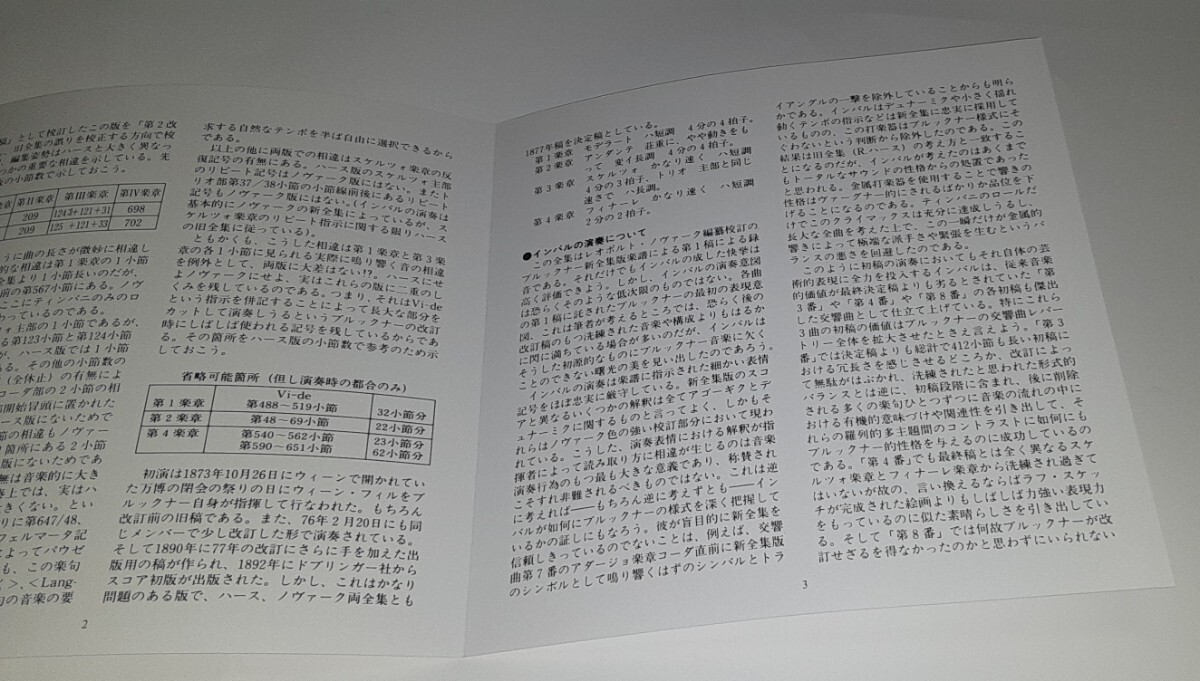 稿」として校訂したこの版を「第2改
、旧全集の誤りを校正する方向で校
、編集姿勢はハースと大きく異なっ
つかの重要な相違を示している。先
の小節数で示しておこう。
楽章 第II楽章 第III楽章 第IV楽章
209 124+121+31 698
209 125+121+33 702
うに曲の長さが微妙に相違し
的な相違は第1楽章の1小節
全集より1小節長いのだが、
前の第567小節にある。ノヴ
ここにティンパニのみのロ
わっているのである。
ォ主部の1小節であるが、
る第123小節と第124小節
が、ハース版では1小節
ある。その他の小節数の
(全休止)の有無によ
コーダ部の2小節の相
部開始冒頭に置かれた
ース版にないためで
節の相違もノヴァー
箇所にある2小節
版にないためであ
無は音楽的に大き
奏上では、実はハ
きくない。とい
りに第647/48、
フェルマータ記
よってパウゼ
も、この楽句
く〉、〈Lang-
句の音楽の要
求する自然なテンポを半ば自由に選択できるから
である。
以上の他に両版での相違はスケルツォ楽章の反
復記号の有無にある。ハース版のスケルツォ主部
のリピート記号はノヴァーク版にはない。またト
リオ部第37/38小節の小節線前後にあるリピート
記号もノヴァーク版にはない。(インバルの演奏は
基本的にノヴァークの新全集によっているが、ス
ケルツォ楽章のリピート指示に関する限りハース
の旧全集に従っている)。
ともかくも、こうした相違は第1楽章と第3楽
章の各1小節に見られる実際に鳴り響く音の相違
を例外として、両版に大差はない!?。ハースにせ
よノヴァークにせよ、実はこれらの版に二重のし
くみを残しているのである。つまり、それはVi-de
という指示を併記することによって長大な部分を
カットして演奏しうるというブルックナーの改訂
時にしばしば使われる記号を残しているからであ
る。その箇所をハース版の小節数で参考のため示
しておこう。
省略可能箇所(但し演奏時の都合のみ)
Vi-de
第1楽章 第488～519小節 32小節分
第2楽章 第48～69小節 22小節分
第4楽章 第540～562小節 23小節分
第590～651小節 62小節分
初演は1873年10月26日にウィーンで開かれてい
た万博の閉会の祭りの日にウィーン・フィルをブ
ルックナー自身が指揮して行なわれた。もちろん
改訂前の旧稿である。また、76年2月20日にも同
じメンバーで少し改訂した形で演奏されている。
そして1890年に77年の改訂にさらに手を加えた出
版用の稿が作られ、1892年にドブリンガー社から
スコア初版が出版された。しかし、これはかなり
問題のある版で、ハース、ノヴァーク両全集とも
2
1877年稿を決定稿としている。
第1楽章 モデラート ハ短調 4分の4拍子。
第2楽章 アンダンテ 荘重に、やや動きをも
って 変イ長調 4分の4拍子。
第3楽章 スケルツォ かなり速く ハ短調
4分の3拍子、トリオ 主部と同じ
速さで ハ長調。
第4楽章 フィナーレ かなり速く ハ短調
2分の2拍子。
●インバルの演奏について
この全集はレオポルト・ノヴァーク編纂校訂の
ブルックナー新全集版楽譜による第1稿による録
音である。それだけでもインバルの成した快挙は
高く評価できよう。しかし、インバルの演奏意図
は恐らくそのような低次限のものではない。各曲
の第1稿に託されたブルックナーの最初の表現意
図。これは筆者が考えるところでは、恐らく後の
改訂稿のもつ洗練された音楽や構成よりもはるか
に閃に満ちている場合が多いのだが、インバルは
そうした初源的なものにブルックナー音楽に欠く
ことのできない曙光の美を見い出したのであろう。
インバルの演奏は楽譜に指示された細かい表情
記号をほぼ忠実に厳守している。新全集版のスコ
アと異なるいくつかの解釈は全てアゴーギクとデ
ュナーミクに関するものと言ってよく、しかもそ
れらはノヴァーク色の強い校訂部分において現わ
れている。こうした、演奏表情における解釈が指
揮者によって読み取り方に相違が生じるのは音楽
演奏行為のもつ最も大きな意義であり、称賛され
こそすれ非難されるべきものではない。これは逆
に考えれば――もちろん逆に考えずとも――イン
バルが如何にブルックナーの様式を深く把握して
いるかの証しにもなろう。彼が盲目的に新全集を
信頼しきっているのでないことは、例えば、交響
曲第7番のアダージョ楽章コーダ直前に新全集版
のシンボルとして鳴り響くはずのシンバルとトラ
イアングルの一撃を除外していることからも明ら
かである。インバルはデュナーミクや小さく揺れ
動くテンポの指示などは新全集に忠実に採用して
いるものの、この打楽器はブルックナー様式にそ
ぐわないという判断から除外したのである。この
結果は旧全集(R.ハース)の考え方と一致する
ことになるのだが、インバルが考えたのはあくまで
もトータルなサウンドの性格からの処置であった
と思われる。金属打楽器を使用することで響きの
性格はヴァーグナー的にされるばかりか品位を下
げることになるのである。ティンパニのロールだ
けでこのクライマックスは充分に達成しうるし、
長大な全曲を考えた上で、この一瞬だけが金属的
響きによって極端な派手さや緊張を生むというバ
ランスの悪さを回避したのである。
このように初稿の演奏においてもそれ自体の芸
術的表現に全力を投入するインバルは、従来音楽
的価値が最終決定稿よりも劣るとされていた「第
3番」や「第4番」や「第8番」の各初稿も傑出
した交響曲として仕立て上げている。特にこれら
3曲の初稿の価値はブルックナーの交響曲レパー
トリー全体を拡大させたとさえ言えよう。「第3
番」では決定稿よりも総計で412小節も長い初稿に
おける冗長さを感じさせるどころか、改訂によっ
て無駄がはぶかれ、洗練されたと思われた形式的
バランスとは逆に、初稿段階に含まれ、後に削除
される多くの楽句ひとつずつに音楽の流れの中に
おける有機的意味づけや関連性を引き出して、そ
れらの羅列的多主題間のコントラストに如何にも
ブルックナー的性格を与えるのに成功しているの
である。「第4番」でも最終稿とは全く異なるスケ
ルツォ楽章とフィナーレ楽章から洗練され過ぎて
はいないが故の、言い換えるならばラフ・スケッ
チが完成された絵画よりもしばしば力強い表現力
をもっているのに似た素晴らしさを引き出してい
る。そして「第8番」では何故ブルックナーが改
訂せざるを得なかったのかと思わずにいられない
3